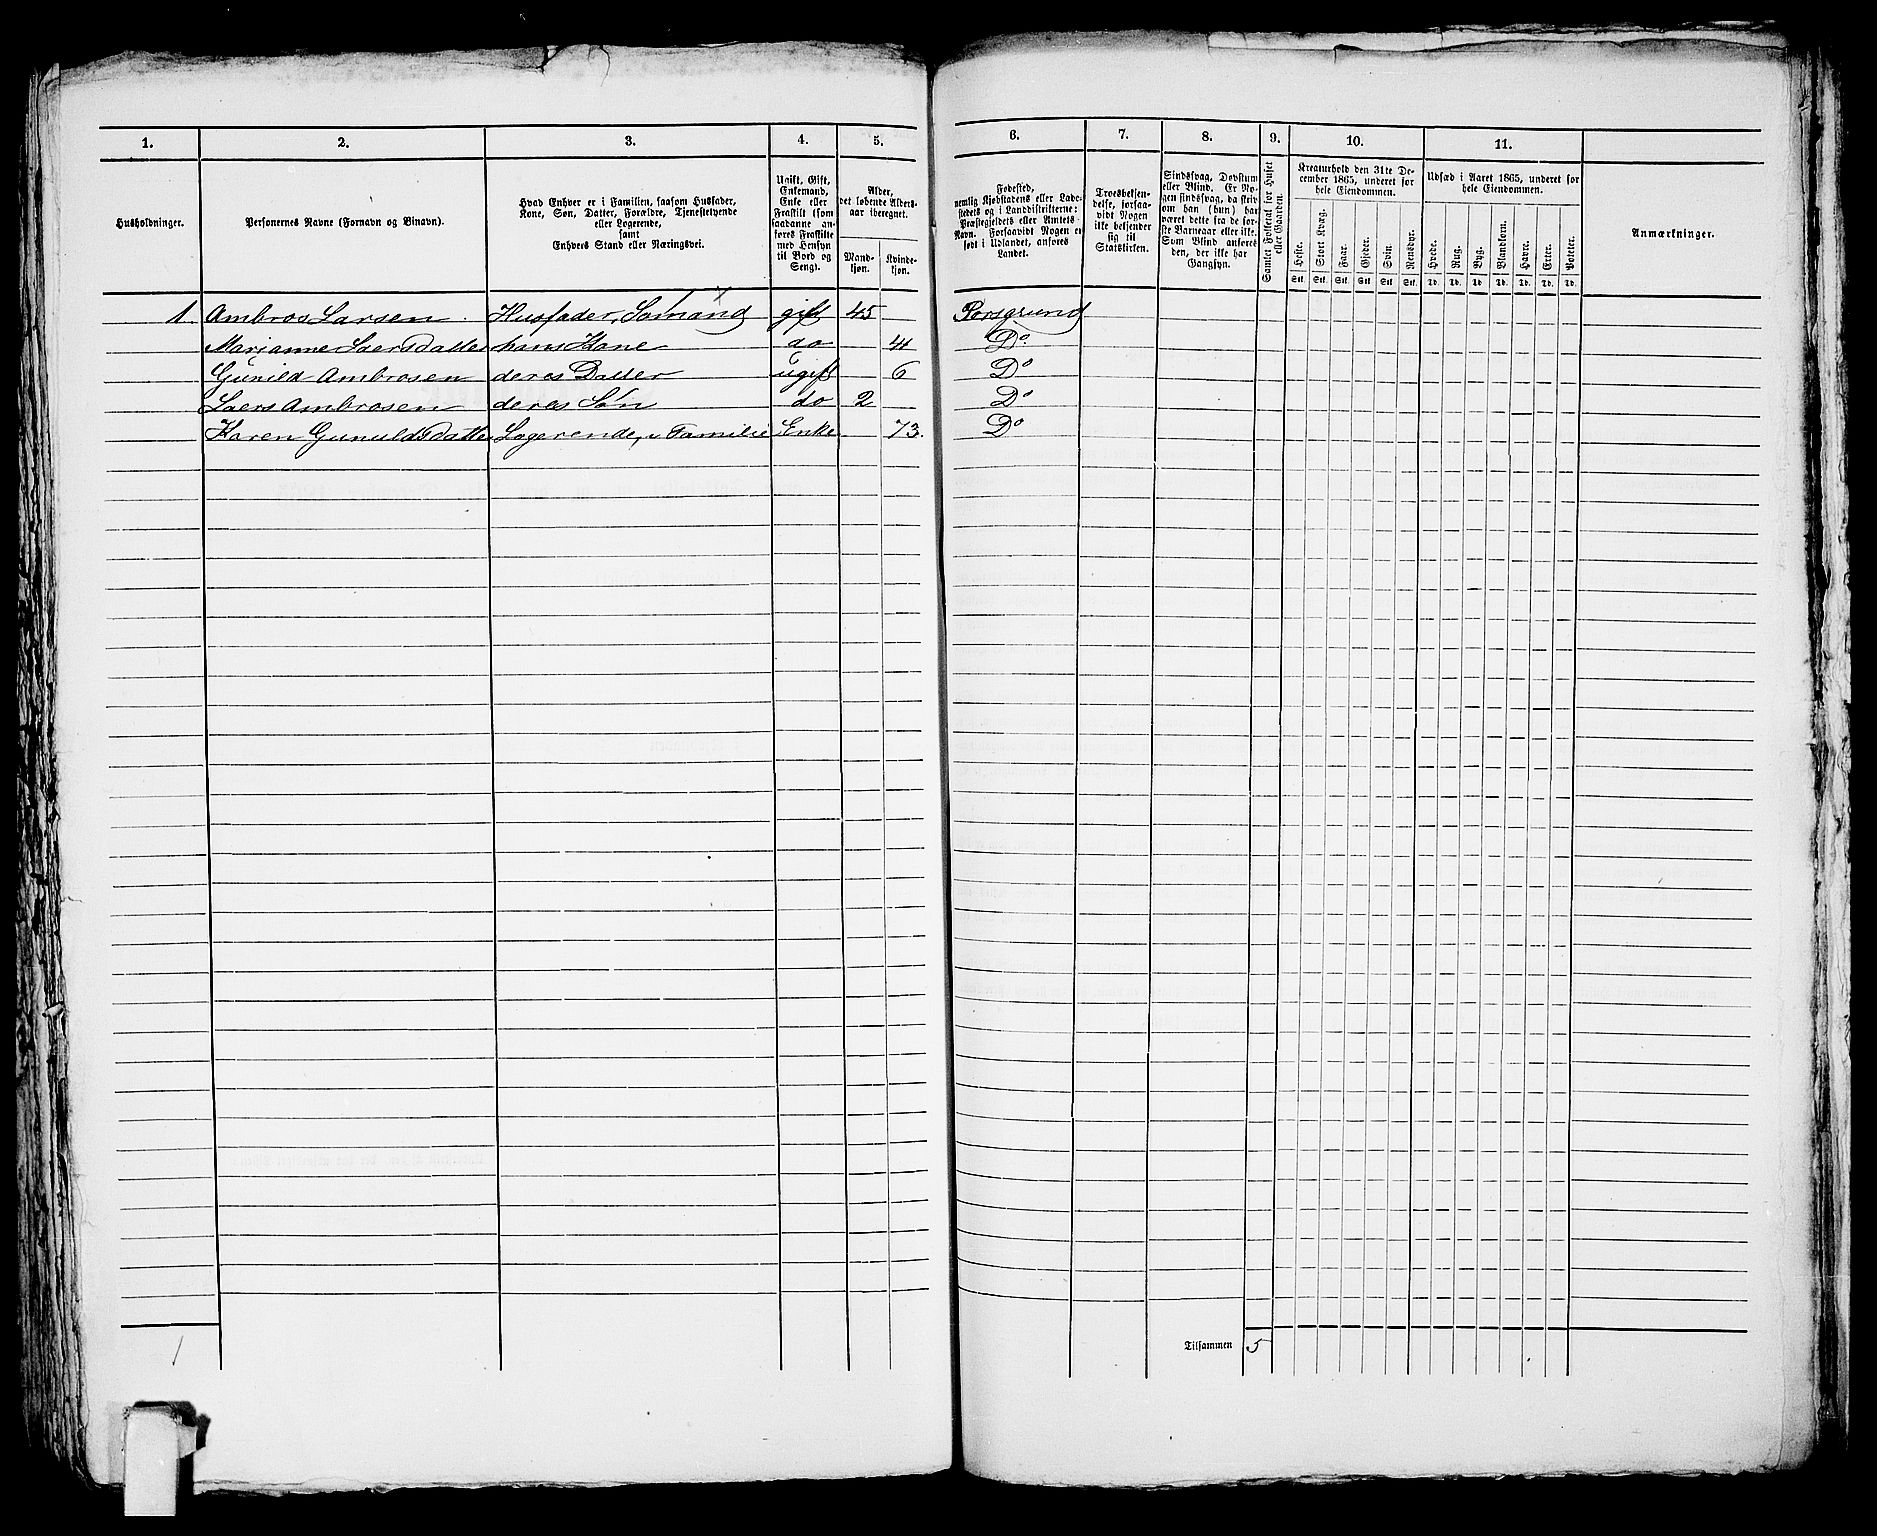 1. 2. 3. 4. 5. 6. 7. 8. 9. 10. 11.
Husholdninger.
Personernes Navne (Fornavn og Binavn).
Hvad Enhver er i Familien, saasom Husfader,
Kone, Søn, Datter, Forældre, Tjenestetyende
eller Logerende,
samt
Enhvers Stand eller Næringsvei.
Ugift, Gift,
Enkemand,
Enke eller
Fraskilt (som
saadanne an-
føres Fraskilte
med Hensyn
til Bord og
Seng).
Alder,
det løbende Alders-
aar iberegnet.
Mand-
kjøn.
Kvinde-
kjøn.
Fødested,
nemlig Kjøbstadens eller Lade-
stedets og i Landdistrikterne:
Præstegjeldets eller Amtets
Navn. Forsaavidt Nogen er
født i Udlandet, anføres
Landet.
Troesbekjen-
delse, forsaa-
vidt Nogen
ikke bekjender
sig til
Statskirken.
Sindssvag, Døvstum
eller Blind. Er No-
gen sindssvag, da skriv
om han (hun) har
været dette fra de før-
ste Barneaar eller ikke.
Som Blind anføres
den, der ikke har
Gangsyn.
Samlet Folketal for Huset
eller Gaarden.
Kreaturhold den 31te De-
cember 1865, underet for
hele Eiendommen.
Heste. Stort Kvæg. Faar. Gjeder. Svin. Rensdyr.
Stk. Stk. Stk. Stk. Stk. Stk.
Udsæd i Aaret 1865, underet for
hele Eiendommen.
Hvede. Rug. Byg. Blandkorn. Havre. Erter. Poteter.
Td. Td. Td. Td. Td. Td. Td.
Anmærkninger.
1. Ambros Larsen Husfader, Sømand gift 45 Porsgrund
Marianne Laersdatter hans Kone do 41 Do
Gunild Ambrosen deres Datter ugift 6 Do
Laers Ambrosen deres Søn do 2 Do
Karen Gunuldsdatter Logerende, u Familie Enke 73. Do
1 Tilsammen 5